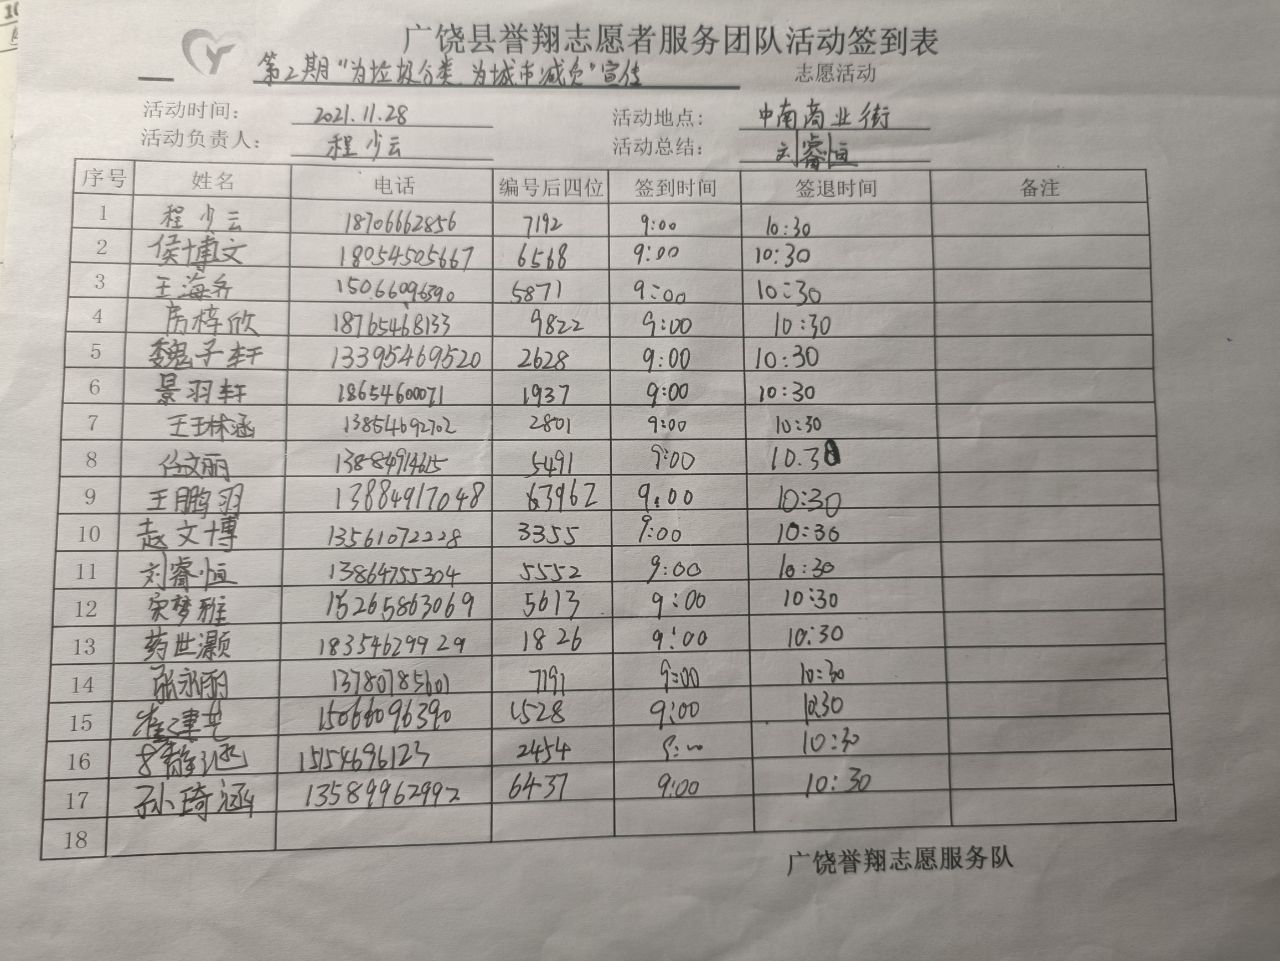 广饶县誉翔志愿者服务团队活动签到表
第2期"为垃圾分类 为城市减负"宣传 志愿活动
活动时间: 2021.11.28 活动地点: 中南商业街
活动负责人: 程少云 活动总结: 刘睿恒
序号 姓名 电话 编号后四位 签到时间 签退时间 备注
1 程少云 18706662856 7192 9:00 10:30
2 侯博文 18054505667 6568 9:00 10:30
3 王海乔 15066096390 5871 9:00 10:30
4 房梓欣 18765468133 9822 9:00 10:30
5 魏子轩 13395469520 2628 9:00 10:30
6 景羽轩 18654600071 1937 9:00 10:30
7 王玉林涵 13854692702 2801 9:00 10:30
8 任文丽 13884914615 5491 9:00 10.30
9 王鹏羽 13884917048 63962 9:00 10:30
10 赵文博 13561072228 3355 9:00 10:30
11 刘睿恒 13864755304 5552 9:00 10:30
12 宋梦雅 15265863069 5613 9:00 10:30
13 药世灏 18354629929 1826 9:00 10:30
14 13780785601 7191 9:00 10:30
15 崔建芝 15066096390 1528 9:00 10:30
16 15154696123 2454 9:00 10:30
17 孙琦涵 13589962992 6437 9:00 10:30
18
广饶誉翔志愿服务队